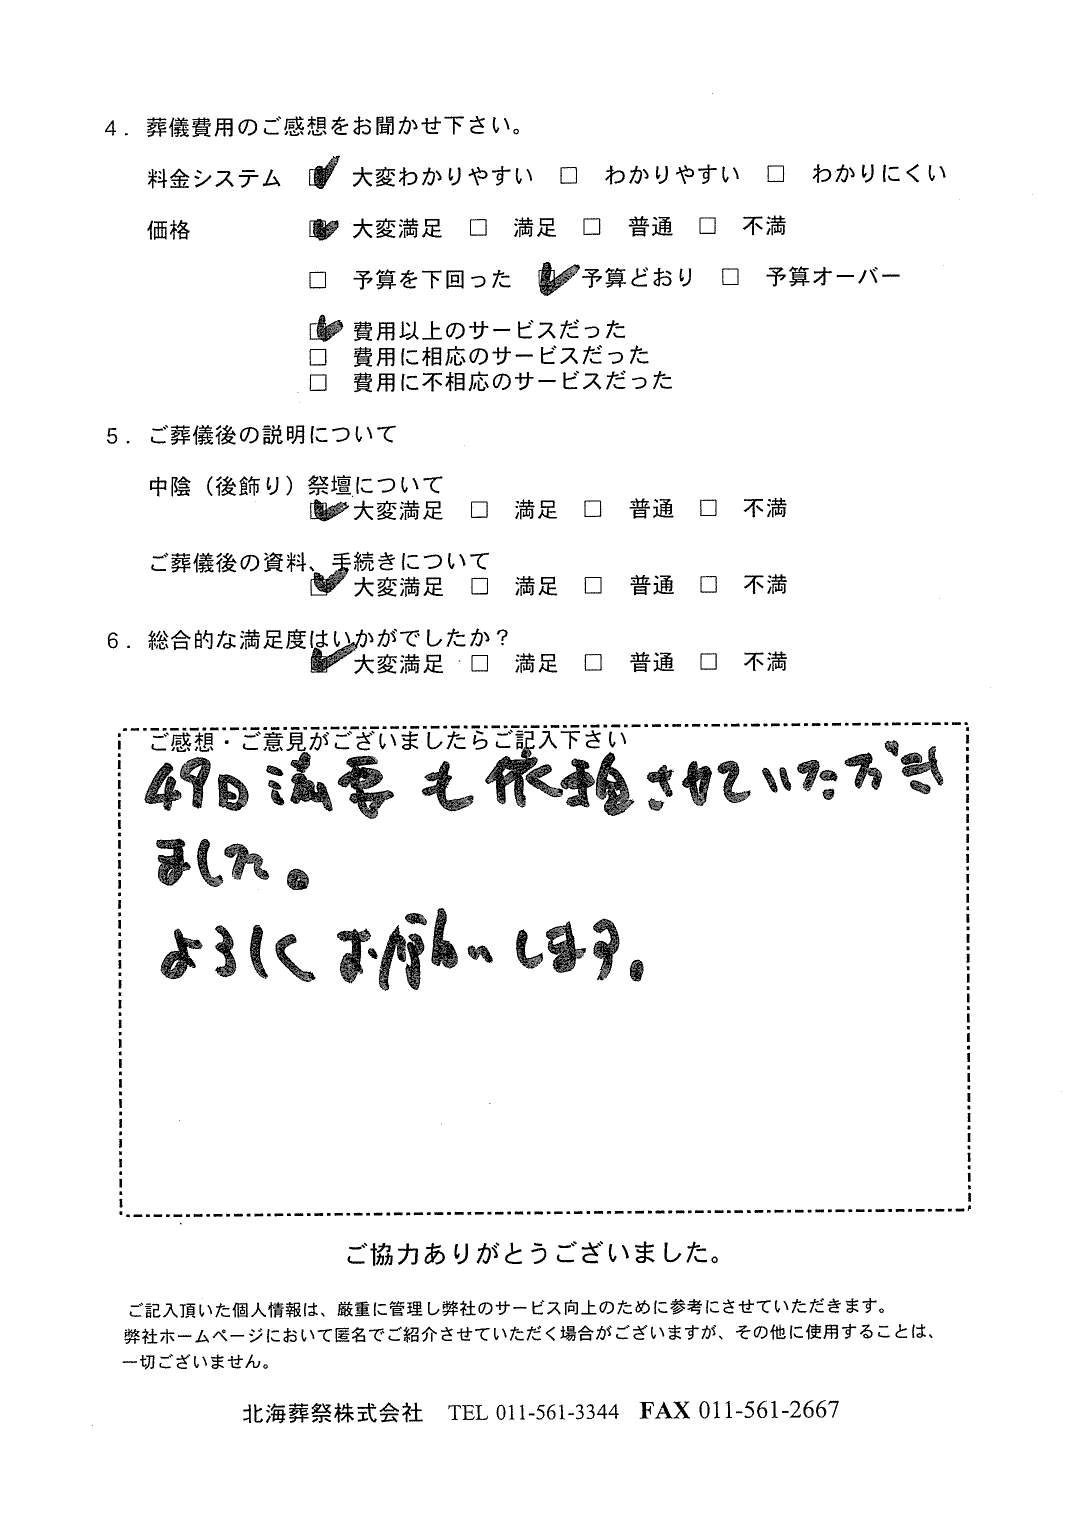 4．葬儀費用のご感想をお聞かせ下さい。
料金システム ☑ 大変わかりやすい □ わかりやすい □ わかりにくい
価格 ☑ 大変満足 □ 満足 □ 普通 □ 不満
□ 予算を下回った ☑ 予算どおり □ 予算オーバー
☑ 費用以上のサービスだった
□ 費用に相応のサービスだった
□ 費用に不相応のサービスだった
5．ご葬儀後の説明について
中陰（後飾り）祭壇について
☑ 大変満足 □ 満足 □ 普通 □ 不満
ご葬儀後の資料、手続きについて
☑ 大変満足 □ 満足 □ 普通 □ 不満
6．総合的な満足度はいかがでしたか？
☑ 大変満足 □ 満足 □ 普通 □ 不満
ご感想・ご意見がございましたらご記入下さい
49日法要も依頼させていただき
ました。
よろしくお願いします。
ご協力ありがとうございました。
ご記入頂いた個人情報は、厳重に管理し弊社のサービス向上のために参考にさせていただきます。
弊社ホームページにおいて匿名でご紹介させていただく場合がございますが、その他に使用することは、
一切ございません。
北海葬祭株式会社 TEL 011-561-3344 FAX 011-561-2667